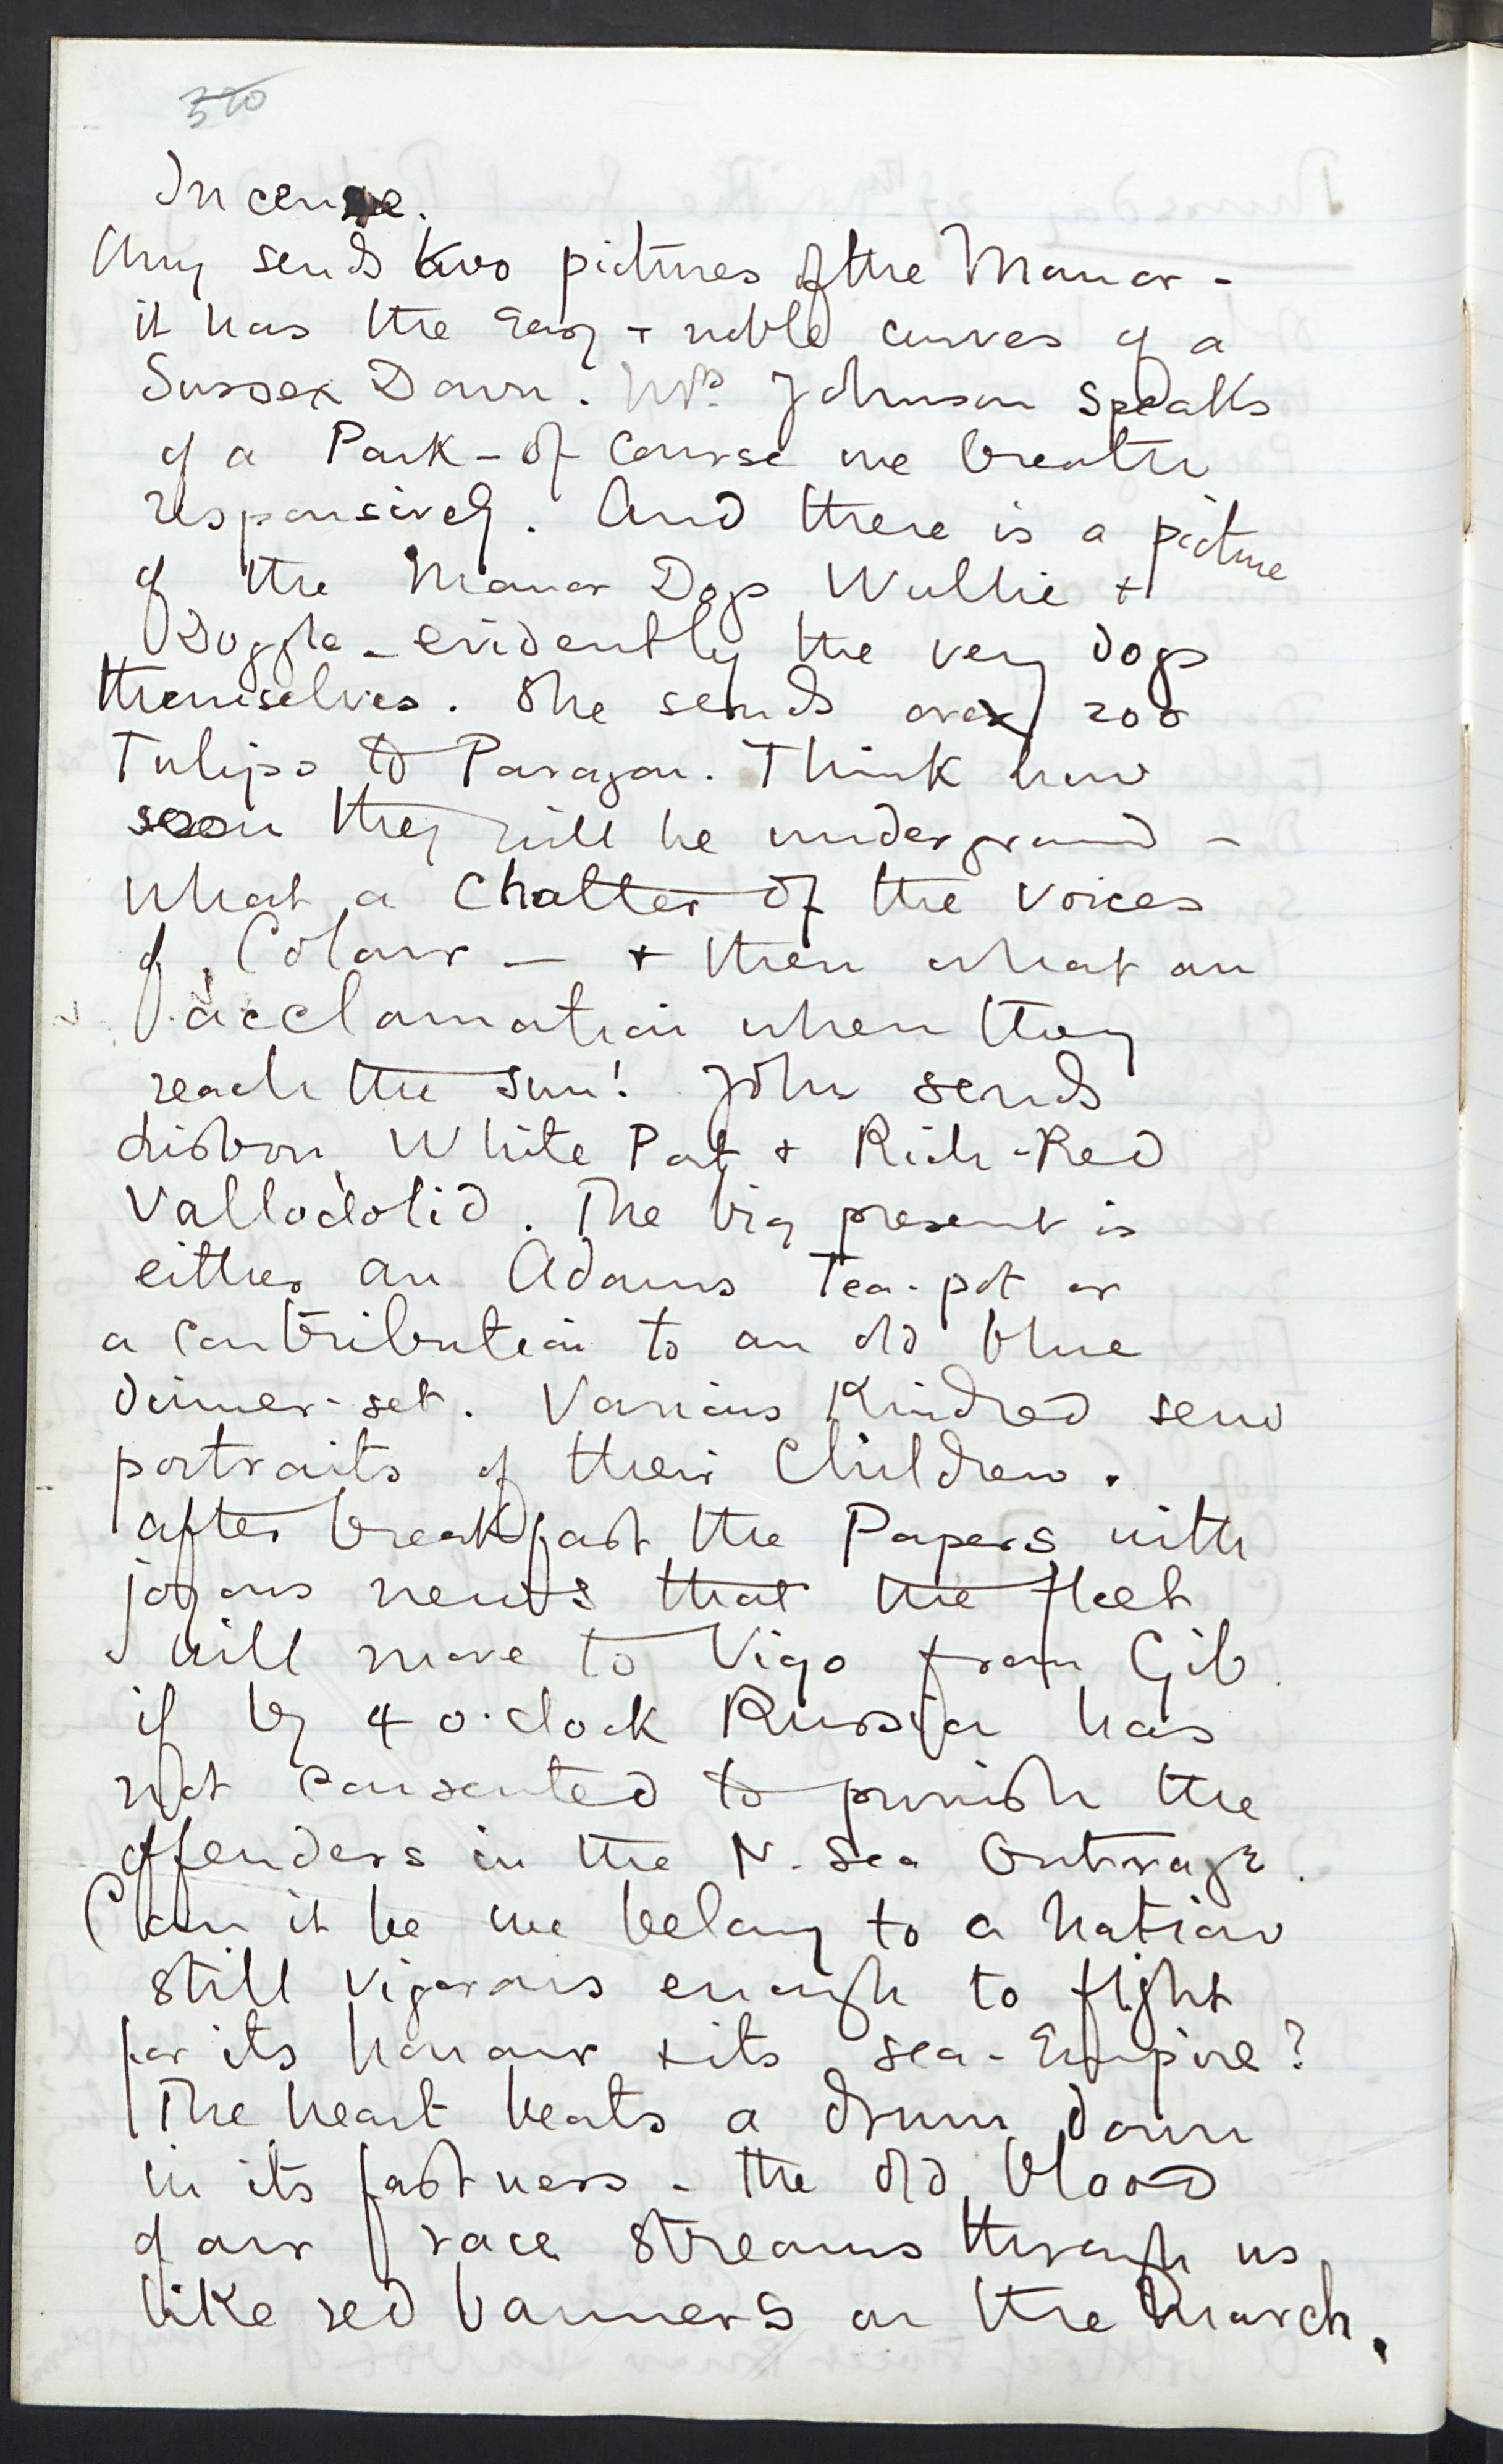 320
Incense.
Amy sends two pictures of the Manor -
it has the easy + noble curves of a
Sussex Down. Mrs. Johnson speaks
of a Park - of course we breathe
responsively. And there is a picture
of the Manor Dogs Wullie +
- evidently the very dogs
themselves. She sends over 200
Tulips to Paragon. Think how
soon they will be underground -
what a chatter of the voices
of Colour - + then what an
acclamation when they
reach the sun! John sends
Lisbon White Port + Rich-Red
Vallodolid. The big present is
either an Adams Tea-pot or
a contribution to an old blue
dinner-set. Various Kindred send
portraits of their Children.
after breakfast the Papers with
joyous news that the fleet
will move to Vigo from Gib.
if by 4 o'clock Russia has
not consented to punish the
offenders in the N. Sea Outrage.
Can it be we belong to a Nation
still vigorous enough to fight
for its honour + its sea-Empire?
The heart beats a drum down
in its fastness - the old blood
of our race streams through us
like red banners on the march.